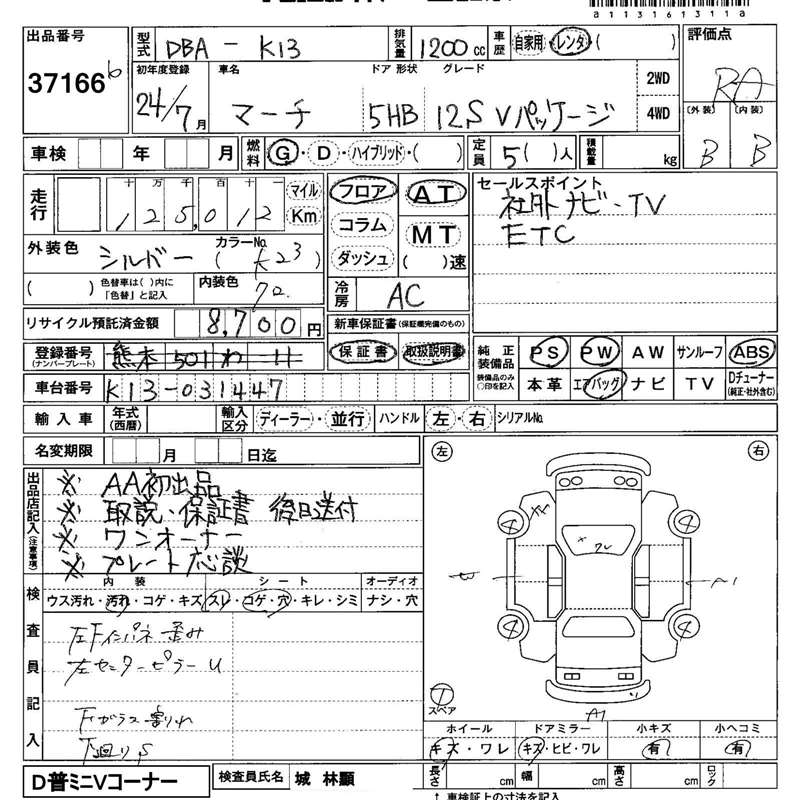 a11316131 1a
出品番号 型式 DBA - K13 排気量 1200cc 車歴 自家用 レンタ ( ) 評価点
37166 6 RA
初年度登録 車名 ドア 形状 グレード 2WD
24/7月 マーチ 5HB 12S Vパッケージ 4WD
〔外装〕 〔内装〕
B B
車検 年 月 燃料 G・D・ハイブリッド・( ) 定員 5( )人 積載量 kg
走行 十 万 千 百 十 一 マイル フロア AT セールスポイント
125,012 Km コラム MT 社外ナビ・TV
ETC
外装色 シルバー カラーNo. ( K23 ) ダッシュ ( )速
( ) 色替車は( )内に「色替」と記入 内装色 冷房 AC
リサイクル預託済金額 8,700円 新車保証書(保証継完備のもの)
登録番号 (ナンバープレート) 熊本 501 わ 11 保証書 取扱説明書 純正装備品 PS PW AW サンルーフ ABS
車台番号 K13-031447 装備品のみ○印を記入 本革 エアバッグ ナビ TV Dチューナー (純正・社外含む)
輸入車 年式(西暦) 輸入区分 ディーラー・並行 ハンドル 左・右 シリアルNo.
名変期限 月 日迄 左 右
出品店記入(注意事項)
※ AA初出品
※ 取説・保証書 後日送付
※ ワンオーナー
※ プレート応談
検査員記入 内装 シート オーディオ
ウス汚れ・汚れ・コゲ・キズ スレ・コゲ・穴・キレ・シミ ナシ・穴
左Fインパネ歪み
左センターピラーU
Fガラス割れ
下廻りS
4 4
A1
4 4
T スペア
A1
ホイール ドアミラー 小キズ 小ヘコミ
キズ・ワレ キズ・ヒビ・ワレ 有 有
D普ミニVコーナー 検査員氏名 城 林顕 長さ cm 幅 cm 高さ cm ロック
↑ 車検証上の寸法を記入